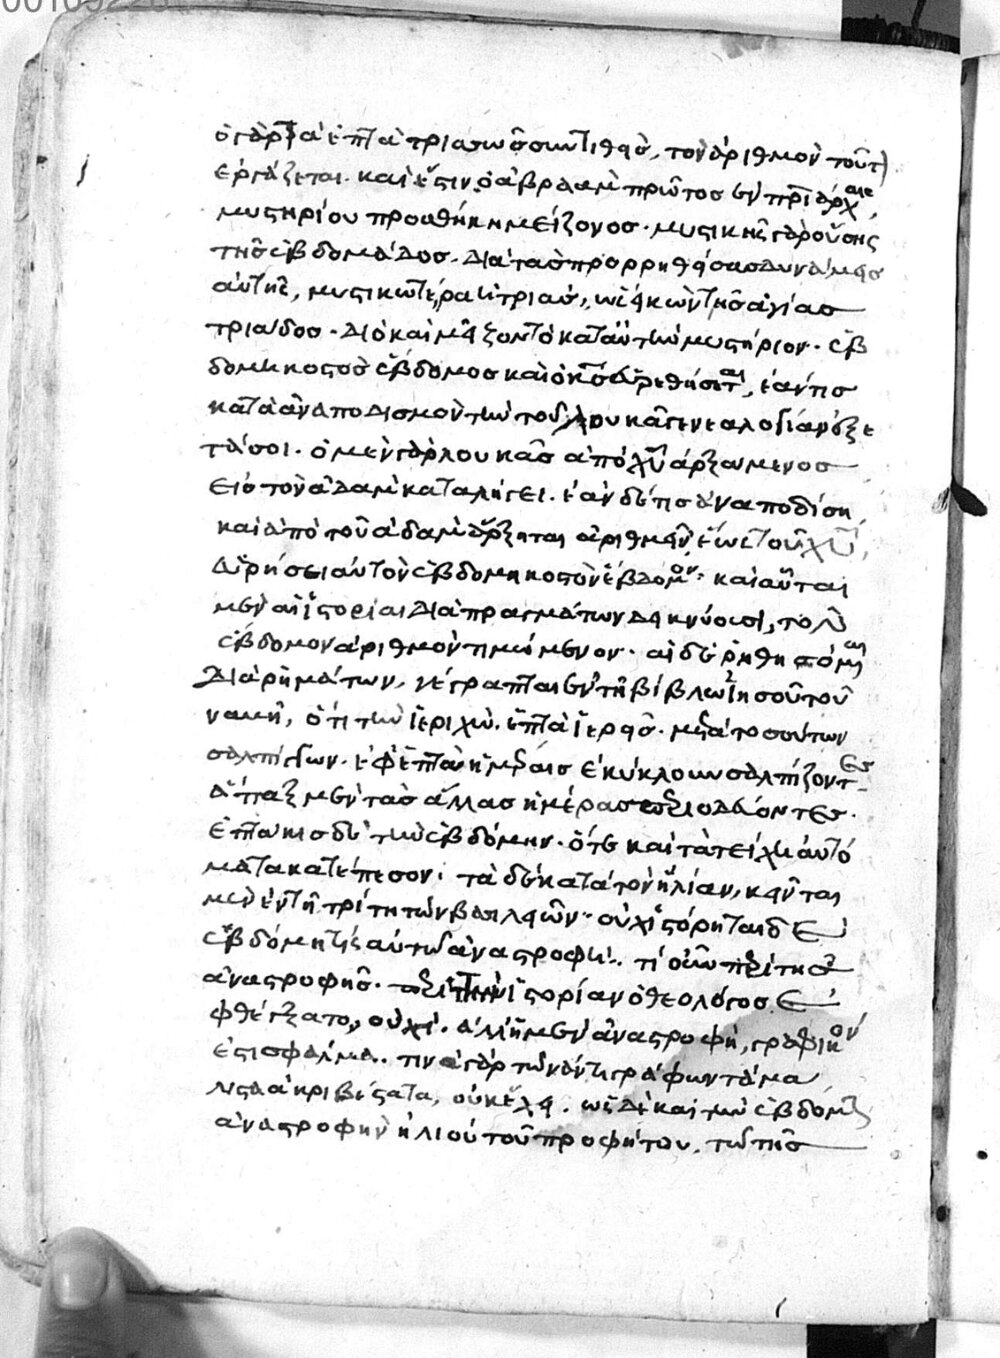 ὁ γὰρ τὰ ἑπτὰ τρία συντιθεὶς, τὸν ἀριθμὸν τοῦτον
ἐργάζεται. καὶ ἔστιν ὁ ἀβραὰμ πρῶτος ἐν πριάρχαις,
μυστηρίου προσθήκη μείζονος. μυστικῆς γὰρ οὔσης
τῆς ἑβδομάδος. διὰ τὰς προρρηθείσας δυνάμεις
αὐτῆς, μυστικωτέρα ἡ τριὰς, ὡς εἰκὼν τῆς ἁγίας
τριάδος. διὸ καὶ μεῖζον τὸ κατ αὐτὴν μυστήριον. ἑβ
δομηκοστὸς ἕβδομος καὶ ὁ χς εὑρεθήσεται, ἐάν τις
κατὰ ἀναποδισμὸν τὴν τοῦ λουκᾶ γενεαλογίαν ἐξε
τάσοι. ὁ μὲν γὰρ λουκᾶς ἀπὸ χυ ἀρξάμενος
εἰς τὸν ἀδὰμ καταλήγει. ἐὰν δέ τις ἀναποδίση
καὶ ἀπὸ τοῦ ἀδὰμ ἄρξηται ἀριθμεῖν ἕως τοῦ χυ,
εὑρήσει αὐτὸν ἑβδομηκοστὸν ἕβδομον. καὶ αὗται
μὲν αἱ ἱστορίαι διὰ πραγμάτων δεικνύουσι, τὸν
ἕβδομον ἀριθμὸν τιμώμενον. αἱ δὲ ῥηθησόμεναι
διὰ ῥημάτων. γέγραπται ἐν τῆ βίβλω ἰησοῦ τοῦ
ναυῆ, ὅτι τὴν ἱεριχὼ ἑπτὰ ἱερεῖς. μετὰ τοσούτων
σαλπίγγων. ἐφ ἑπτὰ ἡμέραις ἐκύκλουν σαλπίζοντες
ἅπαξ μὲν τὰς ἄλλας ἡμέρας περιοδεύοντες.
ἑπτάκις δὲ τὴν ἑβδόμην. ὅτε καὶ τὰ τείχη αὐτό
ματα κατέπεσον. τὰ δὲ κατὰ τὸν ἠλίαν, κεῖνται
μὲν ἐν τῆ τρίτη τῶν βασιλειῶν. οὐχ ἱστόρηται δὲ
ἑβδόμη τίς αὐτῶ ἀναστροφή. τί οὖν περὶ τῆς
ἀναστροφῆς. περὶ τὴν ἱστορίαν ὁ θεολόγος
φθέγξατο, οὐχί. ἀλλ ἡ μὲν ἀναστροφὴ, γραφικὸν
ἐστι σφάλμα. τινὰ γὰρ τῶν ἀντιγράφων τὰ μά
λιστα ἀκριβέστατα, οὐκ ἔχει. ὡς δὲ καὶ τὴν ἑβδόμην
ἀναστροφὴν ἠλιοὺ τοῦ προφήτου, τῶ τῆς